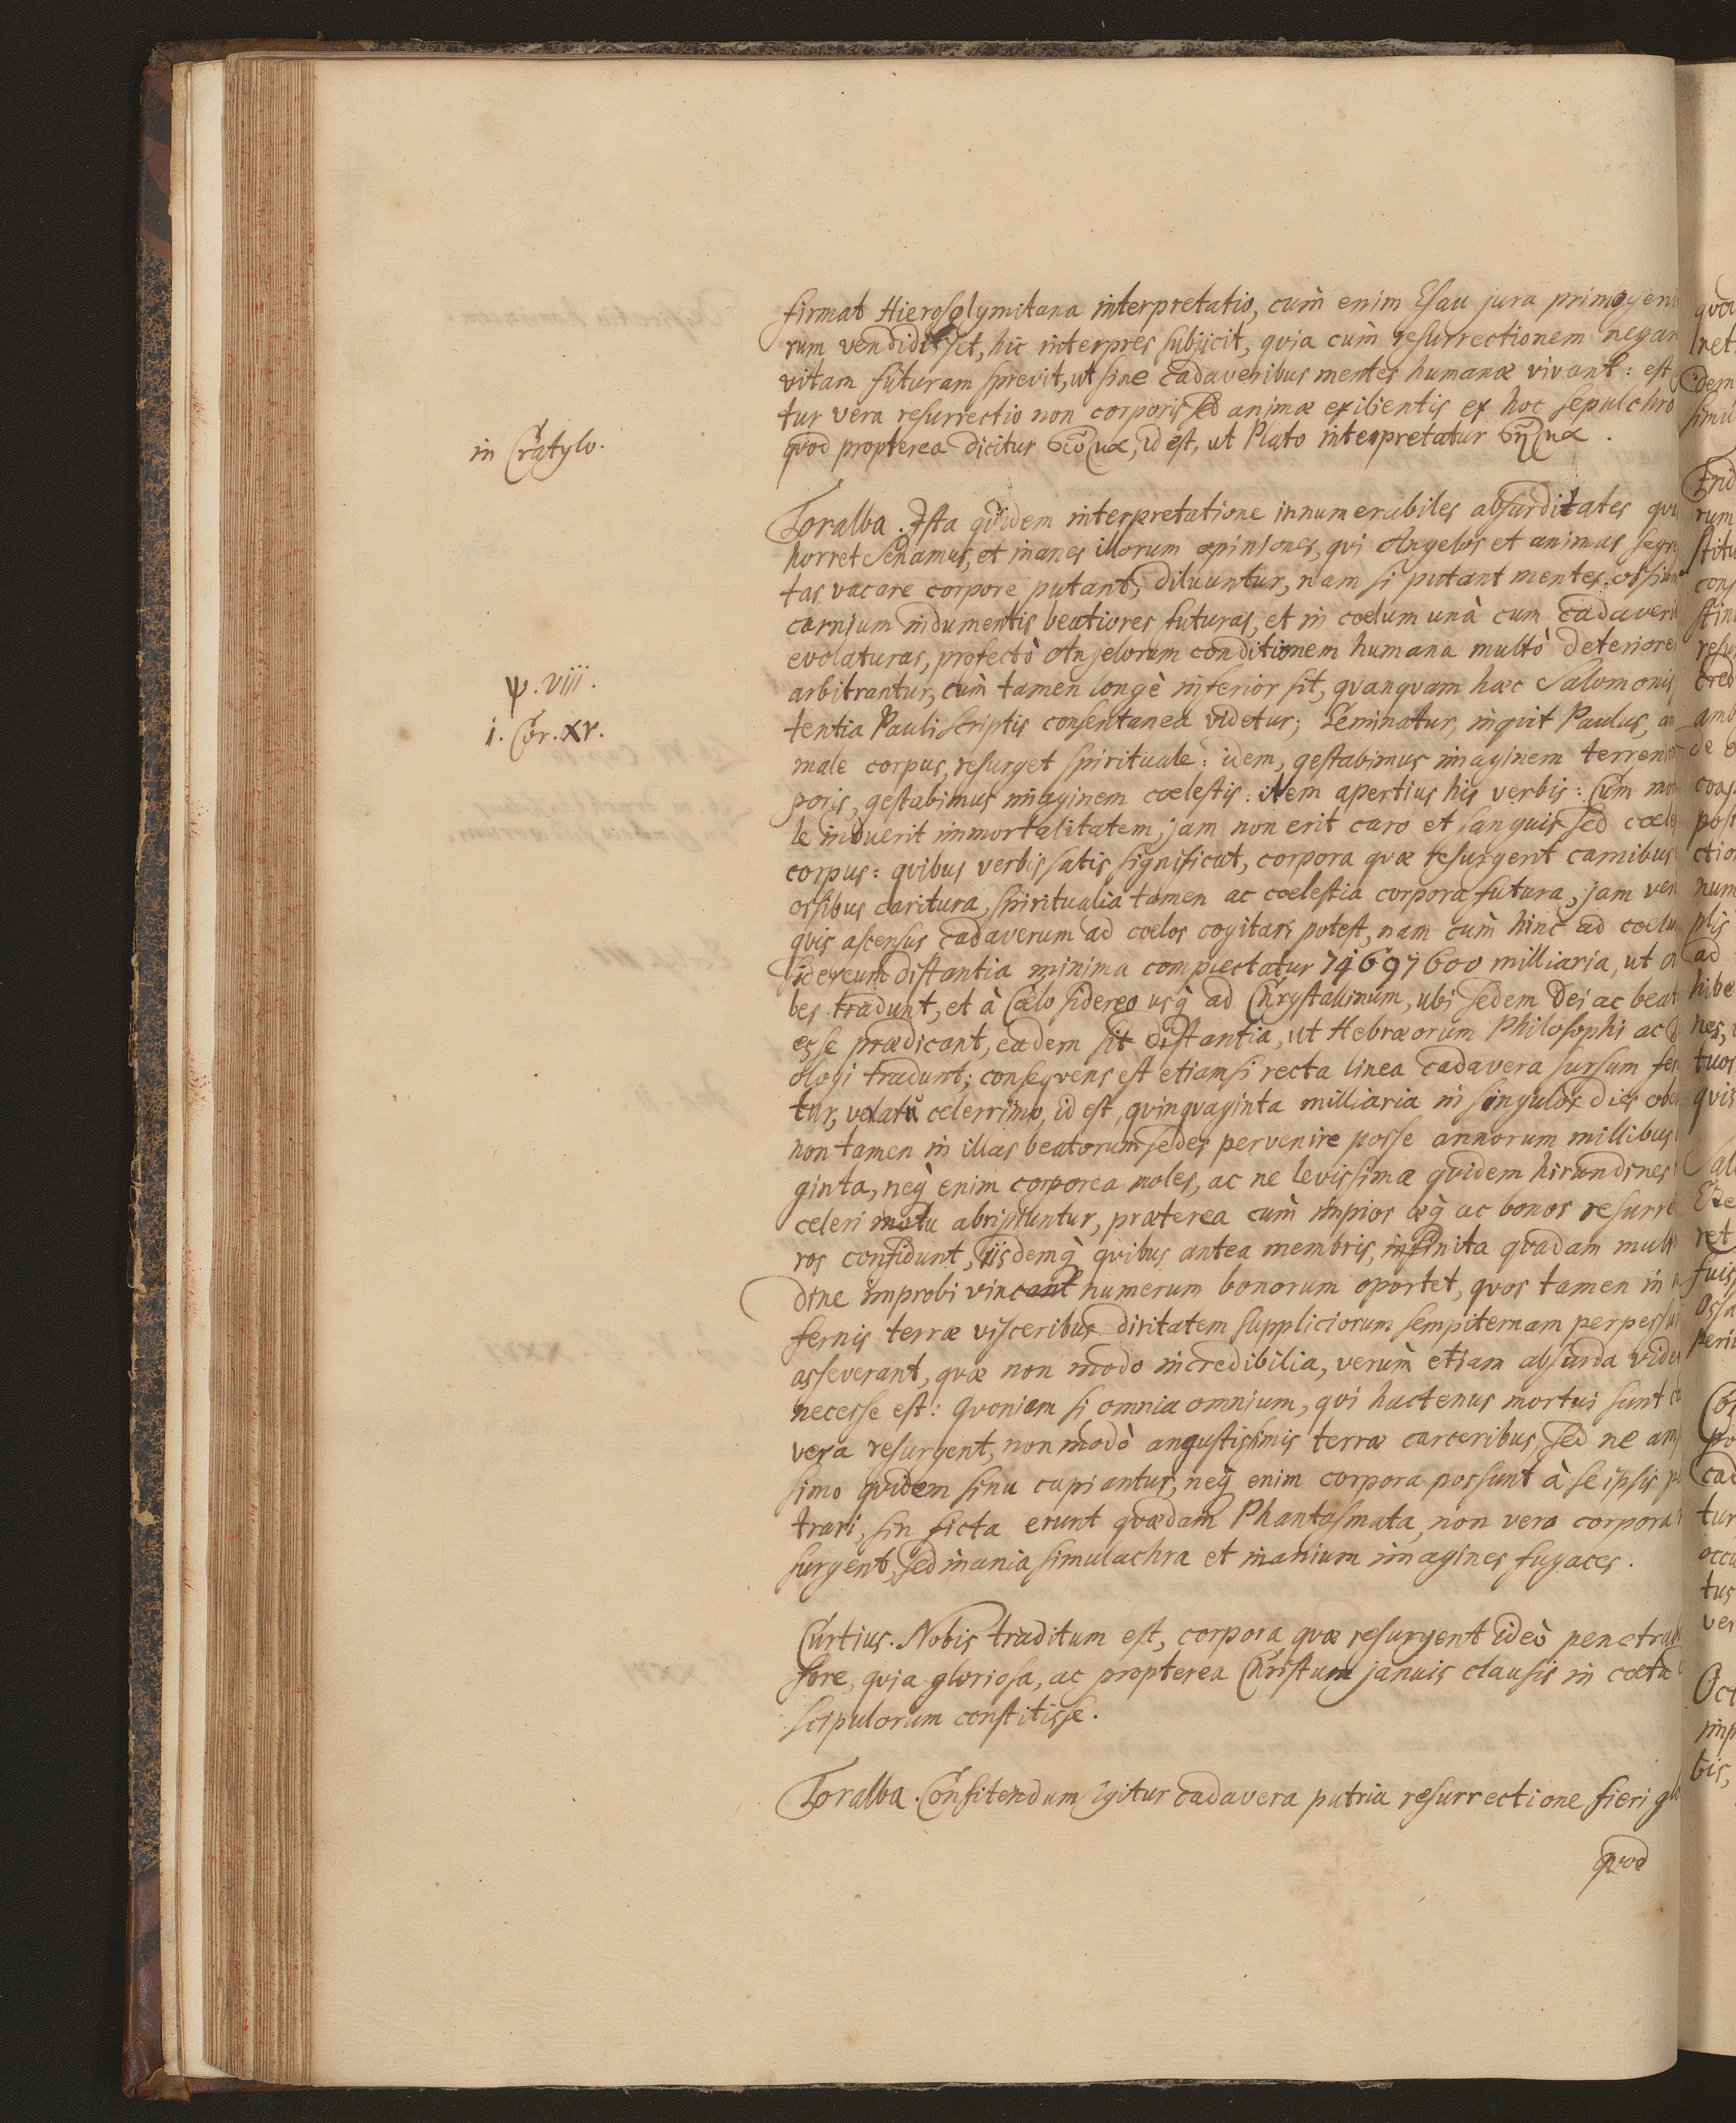 firmat Hierosolymitana interpretatio, cum̀ enim Esau jura primogeni
rum vendidisset, hic interpres subjicit, qvia cùm resurrectionem negar
vitam futuram sprevit, ut sine cadaveribus mentes humanæ vivant: est
tur vera resurrectio non corporis sed animæ exilientis ex hoc sepulchro
in Cratylo.
qvod propterea dicitur σῶμα, id est, ut Plato interpretatur σῆμα.
Toralba. Ista qvidem interpretatione innumerabiles absurditates qvas
horret Senamus, et inanes illorum opiniones, qvi Angelos et animas segre
tas vacare corpore putant, diluuntur, nam si putant mentes ossium
carnium indumentis beatiores futuras, et in cœlum unà cum cadaveri
evolaturas, profectò Angelorum conditionem humana multò deteriorem
ψ. viii.
arbitrantur, cùm tamen longè inferior sit, qvanqvam hæc Salomonis
i. Cor. xv.
tentia Pauli scriptis consentanea videtur; Seminatur, inqvit Paulus, ani
male corpus, resurget spirituale: idem, gestabimus imaginem terreni cor
poris, gestabimus imaginem cœlestis: item apertius his verbis: Cùm mor
le induerit immortalitatem, jam non erit caro et sanguis sed cœle
corpus: qvibus verbis satis significat, corpora qvæ resurgent carnibus
ossibus caritura, spiritualia tamen ac cœlestia corpora futura, jam ver
qvis ascensus cadaverum ad cœlos cogitari potest, nam cùm hinc ad cœlum
sidereum distantia minima complectatur 74697600 milliaria, ut
bes tradunt, et à Cœlo sidereo usq̀ ad Chrystallinum, ubi sedem Dei ac beat
esse prædicant, eadem sit distantia, ut Hebræorum Philosophi ac
ologi tradunt; conseqvens est etiamsi recta linea cadavera sursum fer
tur, volatu celerrimo, id est, qvinqvaginta milliaria in singulos dies obe
non tamen in illas beatorum sedes pervenire posse annorum millibus
ginta, neq̀ enim corporea moles, ac ne levissimæ qvidem hirundines
celeri motu abripiuntur, præterea cùm impios æq̀ ac bonos resurre
ros confidunt, iisdemq̀ qvibus antea membris, infinita qvadam multi
dine improbi vincant numerum bonorum oportet, qvos tamen in
fernis terræ visceribus diritatem suppliciorum sempiternam perpessu
asseverant, qvæ non modo incredibilia, verùm etiam absurda vide
necesse est: Qvoniam si omnia omnium, qvi hactenus mortui sunt
vera resurgent, non modò angustissimis terræ carceribus, sed ne am
simo qvidem sinu capiantur, neq̀ enim corpora possunt à se ipsis p
trari, sin ficta erunt qvædam Phantasmata, non vera corpora
surgent, sed inania simulachra et inanium imagines fugaces.
Curtius. Nobis traditum est, corpora qvæ resurgent ideò penetra
fore, qvia gloriosa, ac propterea Christum januis clausis in cœtu
scipulorum constitisse.
Toralba. Confitendum igitur cadavera putria resurrectione fieri glo
qvod